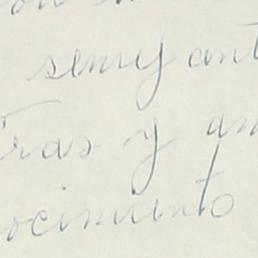 semej ant
tras y am
ocimiento